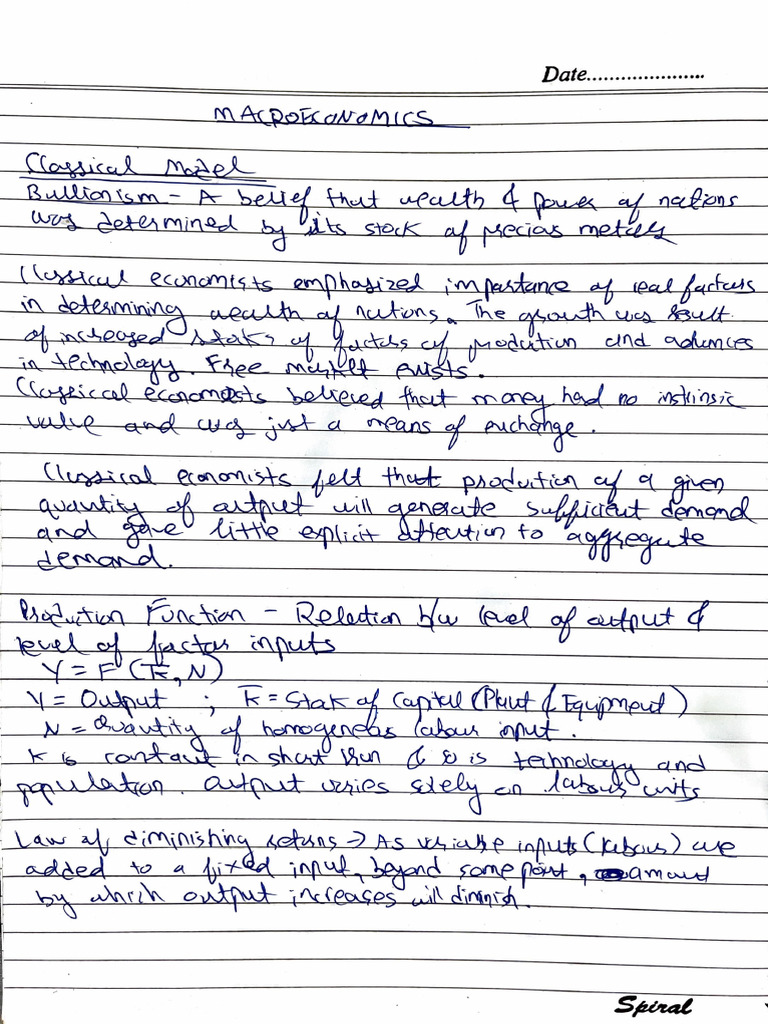 Date.....................
MACROECONOMICS
Classical Model
Bullionism - A belief that wealth & power of nations
was determined by its stock of precias metals
Classical economists emphasized importance of real factors
in determining wealth of nations. The growth was result
of increased stoks of factors of prodution and advances
in technology. Free market exists.
Classical economists believed that money had no instrinsic
value and was just a means of exchange.
Classical economists felt that production of a given
quantity of output will generate sufficient demand
and gave little explicit attention to aggregate
demand.
Production Function - Relation b/w level of output &
level of factor inputs
Y = F (K̅, N)
Y = Output ; K̅ = Stok of Capital (Plant & Equipment)
N = Quantity of homogeneas labour input.
K is constant in short run & so is technology and
population. Output varies solely on labour units
Law of diminishing returns → As variable inputs (labour) are
added to a fixed input, beyond some point, amount
by which output increases will diminish.
Spiral